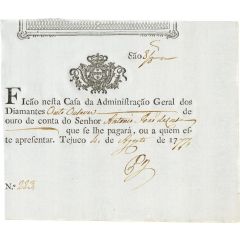 São 8/8as
Ficão nesta Casa da Administração Geral dos
Diamantes Outo Outavas de
ouro de conta do Senhor Antonio
que se lhe pagará, ou a quem es-
te apresentar. Tejuco de Agosto de 177
N.º 223